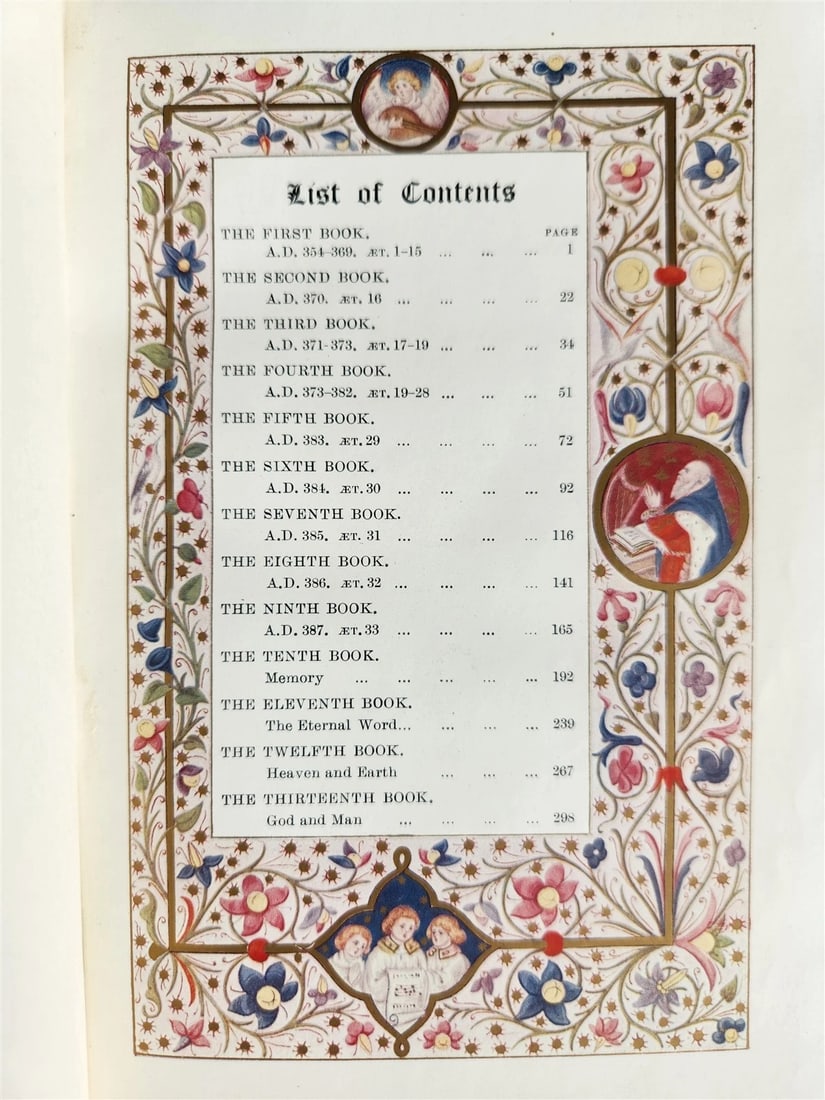 List of Contents
PAGE
THE FIRST BOOK.
A.D. 354-369. ÆT. 1-15 ... ... ... 1
THE SECOND BOOK.
A.D. 370. ÆT. 16 ... ... ... ... 22
THE THIRD BOOK.
A.D. 371-373. ÆT. 17-19 ... ... ... 34
THE FOURTH BOOK.
A.D. 373-382. ÆT. 19-28 ... ... ... 51
THE FIFTH BOOK.
A.D. 383. ÆT. 29 ... ... ... ... 72
THE SIXTH BOOK.
A.D. 384. ÆT. 30 ... ... ... ... 92
THE SEVENTH BOOK.
A.D. 385. ÆT. 31 ... ... ... ... 116
THE EIGHTH BOOK.
A.D. 386. ÆT. 32 ... ... ... ... 141
THE NINTH BOOK.
A.D. 387. ÆT. 33 ... ... ... ... 165
THE TENTH BOOK.
Memory ... ... ... ... ... 192
THE ELEVENTH BOOK.
The Eternal Word... ... ... ... 239
THE TWELFTH BOOK.
Heaven and Earth ... ... ... 267
THE THIRTEENTH BOOK.
God and Man ... ... ... ... 298